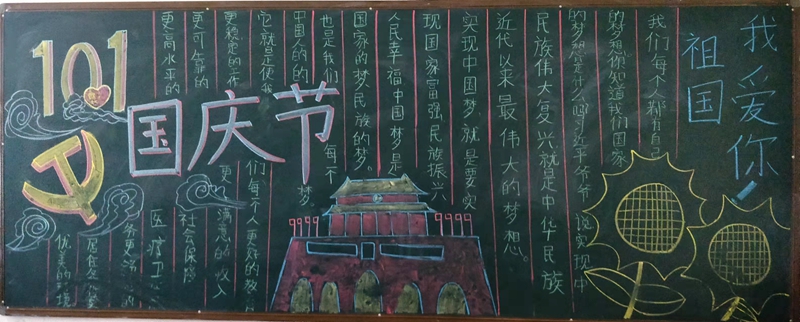 我爱你
祖国
101
国庆节
我们每个人都有自己
的梦想你知道我们国家
的梦想是什么吗?习近平爷爷说实现中
民族伟大复兴就是中华民族
近代以来最伟大的梦想。
实现中国梦就是要实
现国家富强民族振兴
人民幸福中国梦是
国家的梦民族的梦。
也是我们每一个
中国人的的梦
它就是使我们每个人更好的教育
更稳定的工作更满意的收入
更可靠的社会保障
更高水平的医疗卫
务更舒的
居住
优美的环境